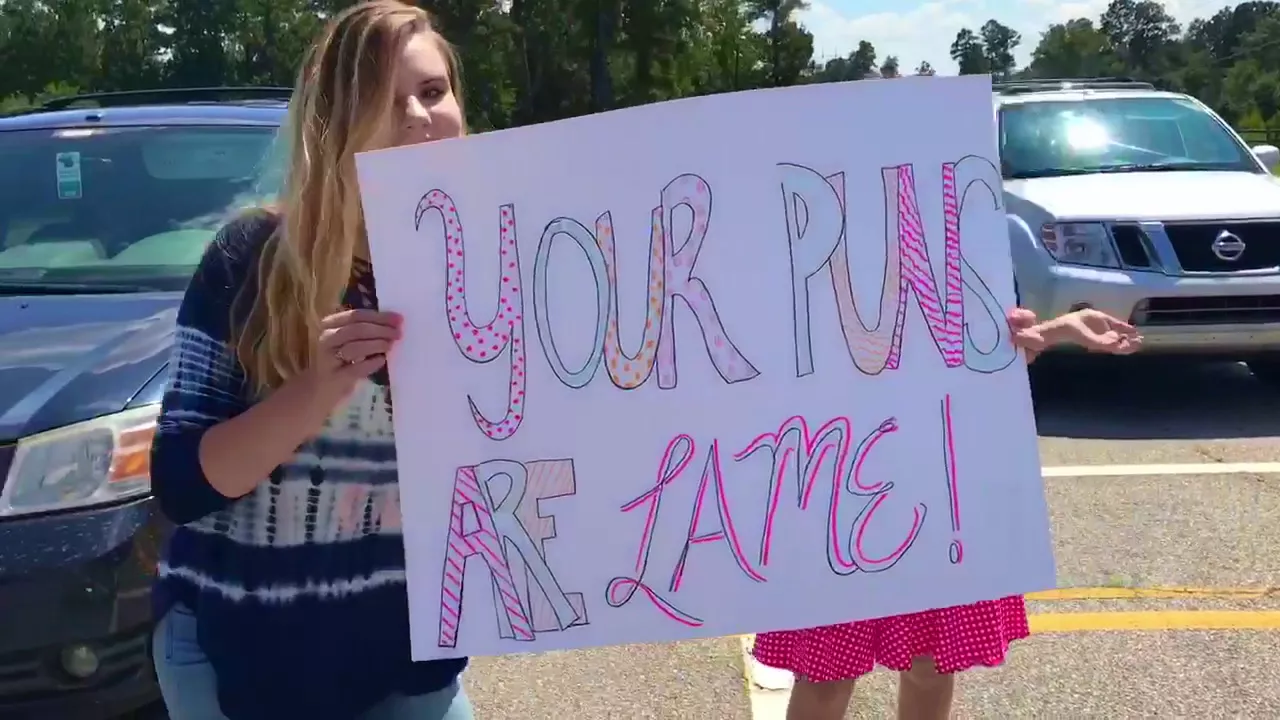 YOUR PUNS
ARE LAME!